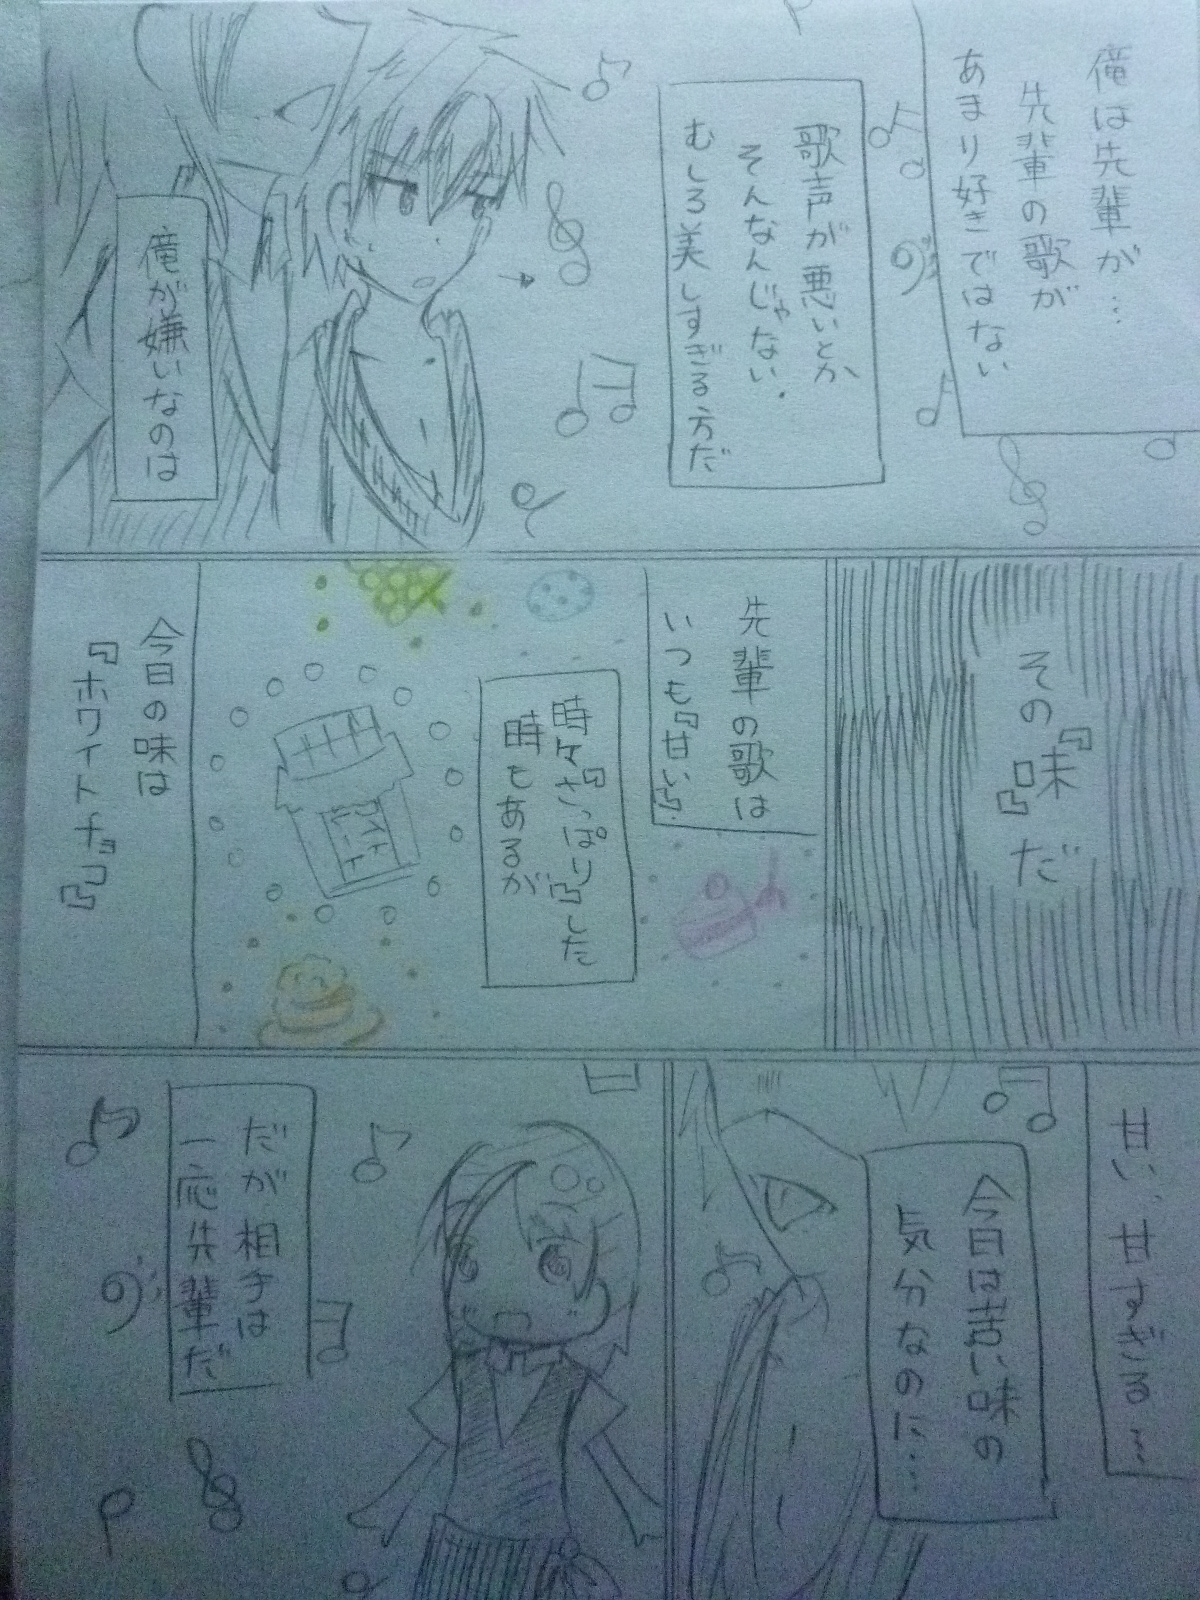 俺は先輩が…
先輩の歌が
あまり好きではない
歌声が悪いとか
そんなんじゃない.
むしろ美しすぎる方だ
俺が嫌いなのは
その『味』だ
先輩の歌は
いつも『甘い』
時々『さっぱり』した
時もあるが
今日の味は
『ホワイトチョコ』
甘い、甘すぎる…
今日は苦い味の
気分なのに…
だが相手は
一応先輩だ